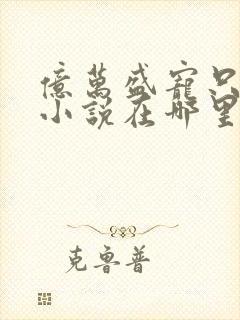 億萬盛寵只
小說在哪里
克魯普